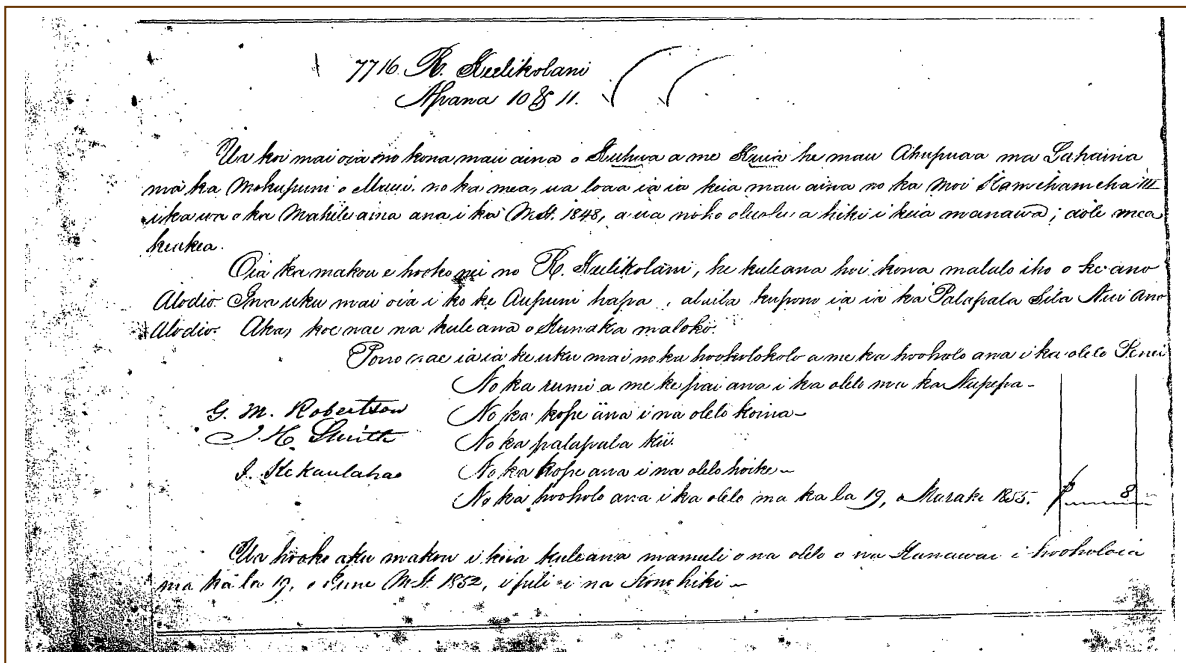 7716. R. Keelikolani
Apana 10 & 11.
Ua koi mai oia no kona mau aina o Kuhua a me Kuia he mau Ahupuaa ma Lahaina
ma ka Mokupuni o Maui, no ka mea, ua loaa ia ia keia mau aina no ka Moi Kamehameha III
i ka wa o ka Mahele aina ana i ka M.H. 1848, a ua noho oluolu a hiki i keia manawa; aole mea
keakea.
Oia ka makou e hooko nei no R. Keelikolani, he kuleana hoi kona malalo iho o ke ano
Alodio Ina uku mai oia i ko ke Aupuni hapa, alaila kupono ia ia ka Palapala Sila Nui Ano
Alodio. Aka, koe nae na kuleana o Kanaka maloko.
Pono nae ia ia ke uku mai no ka hookolokolo a me ka hooholo ana i ka olelo Penei
No ka rumi a me ke pai ana i ka olelo ma ka Nupepa -
G. M. Robertson No ka kope ana i na olelo koina -
J H Smith No ka palapala kii
J. Kekaulahao No ka kope ana i na olelo hoike -
No ka hooholo ana i ka olelo ma ka la 19, o Maraki 1855. $ 8
Ua hooko aku makou i keia kuleana mamuli o na olelo o na Kanawai i hooholoia
ma ka la 19, o Iune M.H. 1852, i pili i na Konohiki -